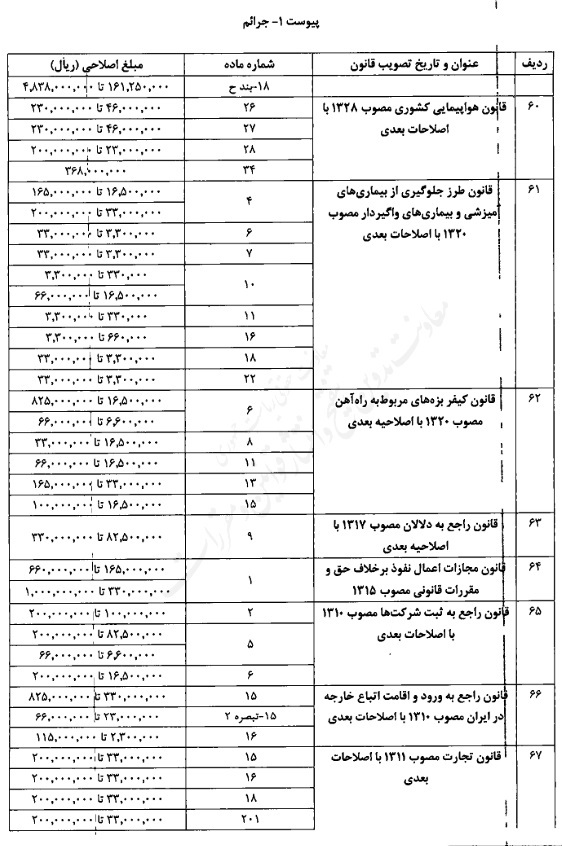 پیوست ۱- جرائم
ردیف عنوان و تاریخ تصویب قانون شماره ماده مبلغ اصلاحی (ریال)
۱۸-بند ح ۱۶۱,۲۵۰,۰۰۰ تا ۴,۸۳۸,۰۰۰,۰۰۰
۶۰ قانون هواپیمایی کشوری مصوب ۱۳۲۸ با ۲۶ ۴۶,۰۰۰,۰۰۰ تا ۲۳۰,۰۰۰,۰۰۰
اصلاحات بعدی ۲۷ ۴۶,۰۰۰,۰۰۰ تا ۲۳۰,۰۰۰,۰۰۰
۲۸ ۲۳,۰۰۰,۰۰۰ تا ۲۰۰,۰۰۰,۰۰۰
۳۴ ۳۶۸,۰۰۰,۰۰۰
۶۱ قانون طرز جلوگیری از بیماری‌های ۴ ۱۶,۵۰۰,۰۰۰ تا ۱۶۵,۰۰۰,۰۰۰
میزشی و بیماری‌های واگیردار مصوب ۳۳,۰۰۰,۰۰۰ تا ۲۰۰,۰۰۰,۰۰۰
۱۳۲۰ با اصلاحات بعدی ۶ ۳,۳۰۰,۰۰۰ تا ۳۳,۰۰۰,۰۰۰
۷ ۳,۳۰۰,۰۰۰ تا ۳۳,۰۰۰,۰۰۰
۱۰ ۳۳۰,۰۰۰ تا ۳,۳۰۰,۰۰۰
۱۶,۵۰۰,۰۰۰ تا ۶۶,۰۰۰,۰۰۰
۱۱ ۳۳۰,۰۰۰ تا ۳,۳۰۰,۰۰۰
۱۶ ۶۶۰,۰۰۰ تا ۳,۳۰۰,۰۰۰
۱۸ ۳,۳۰۰,۰۰۰ تا ۳۳,۰۰۰,۰۰۰
۲۲ ۳,۳۰۰,۰۰۰ تا ۳۳,۰۰۰,۰۰۰
۶۲ قانون کیفر بزه‌های مربوط‌به راه‌آهن ۶ ۱۶,۵۰۰,۰۰۰ تا ۸۲۵,۰۰۰,۰۰۰
مصوب ۱۳۲۰ با اصلاحیه بعدی ۶,۶۰۰,۰۰۰ تا ۶۶,۰۰۰,۰۰۰
۸ ۱۶,۵۰۰,۰۰۰ تا ۳۳,۰۰۰,۰۰۰
۱۱ ۱۶,۵۰۰,۰۰۰ تا ۶۶,۰۰۰,۰۰۰
۱۳ ۳۳,۰۰۰,۰۰۰ تا ۱۶۵,۰۰۰,۰۰۰
۱۵ ۱۶,۵۰۰,۰۰۰ تا ۱۰۰,۰۰۰,۰۰۰
۶۳ قانون راجع به دلالان مصوب ۱۳۱۷ با
اصلاحیه بعدی ۹ ۸۲,۵۰۰,۰۰۰ تا ۳۳۰,۰۰۰,۰۰۰
۶۴ قانون مجازات اعمال نفوذ برخلاف حق و ۱ ۱۶۵,۰۰۰,۰۰۰ تا ۶۶۰,۰۰۰,۰۰۰
مقررات قانونی مصوب ۱۳۱۵ ۳۳۰,۰۰۰,۰۰۰ تا ۱,۰۰۰,۰۰۰,۰۰۰
۶۵ قانون راجع به ثبت شرکت‌ها مصوب ۱۳۱۰ ۲ ۱۰۰,۰۰۰,۰۰۰ تا ۲۰۰,۰۰۰,۰۰۰
با اصلاحات بعدی ۵ ۸۲,۵۰۰,۰۰۰ تا ۲۰۰,۰۰۰,۰۰۰
۶,۶۰۰,۰۰۰ تا ۶۶,۰۰۰,۰۰۰
۶ ۱۶,۵۰۰,۰۰۰ تا ۲۰۰,۰۰۰,۰۰۰
۶۶ قانون راجع به ورود و اقامت اتباع خارجه ۱۵ ۳۳۰,۰۰۰,۰۰۰ تا ۸۲۵,۰۰۰,۰۰۰
در ایران مصوب ۱۳۱۰ با اصلاحات بعدی ۱۵-تبصره ۲ ۲۳,۰۰۰,۰۰۰ تا ۶۶,۰۰۰,۰۰۰
۱۶ ۲,۳۰۰,۰۰۰ تا ۱۱۵,۰۰۰,۰۰۰
۶۷ قانون تجارت مصوب ۱۳۱۱ با اصلاحات ۱۵ ۳۳,۰۰۰,۰۰۰ تا ۲۰۰,۰۰۰,۰۰۰
بعدی ۱۶ ۳۳,۰۰۰,۰۰۰ تا ۲۰۰,۰۰۰,۰۰۰
۱۸ ۳۳,۰۰۰,۰۰۰ تا ۲۰۰,۰۰۰,۰۰۰
۲۰۱ ۳۳,۰۰۰,۰۰۰ تا ۲۰۰,۰۰۰,۰۰۰